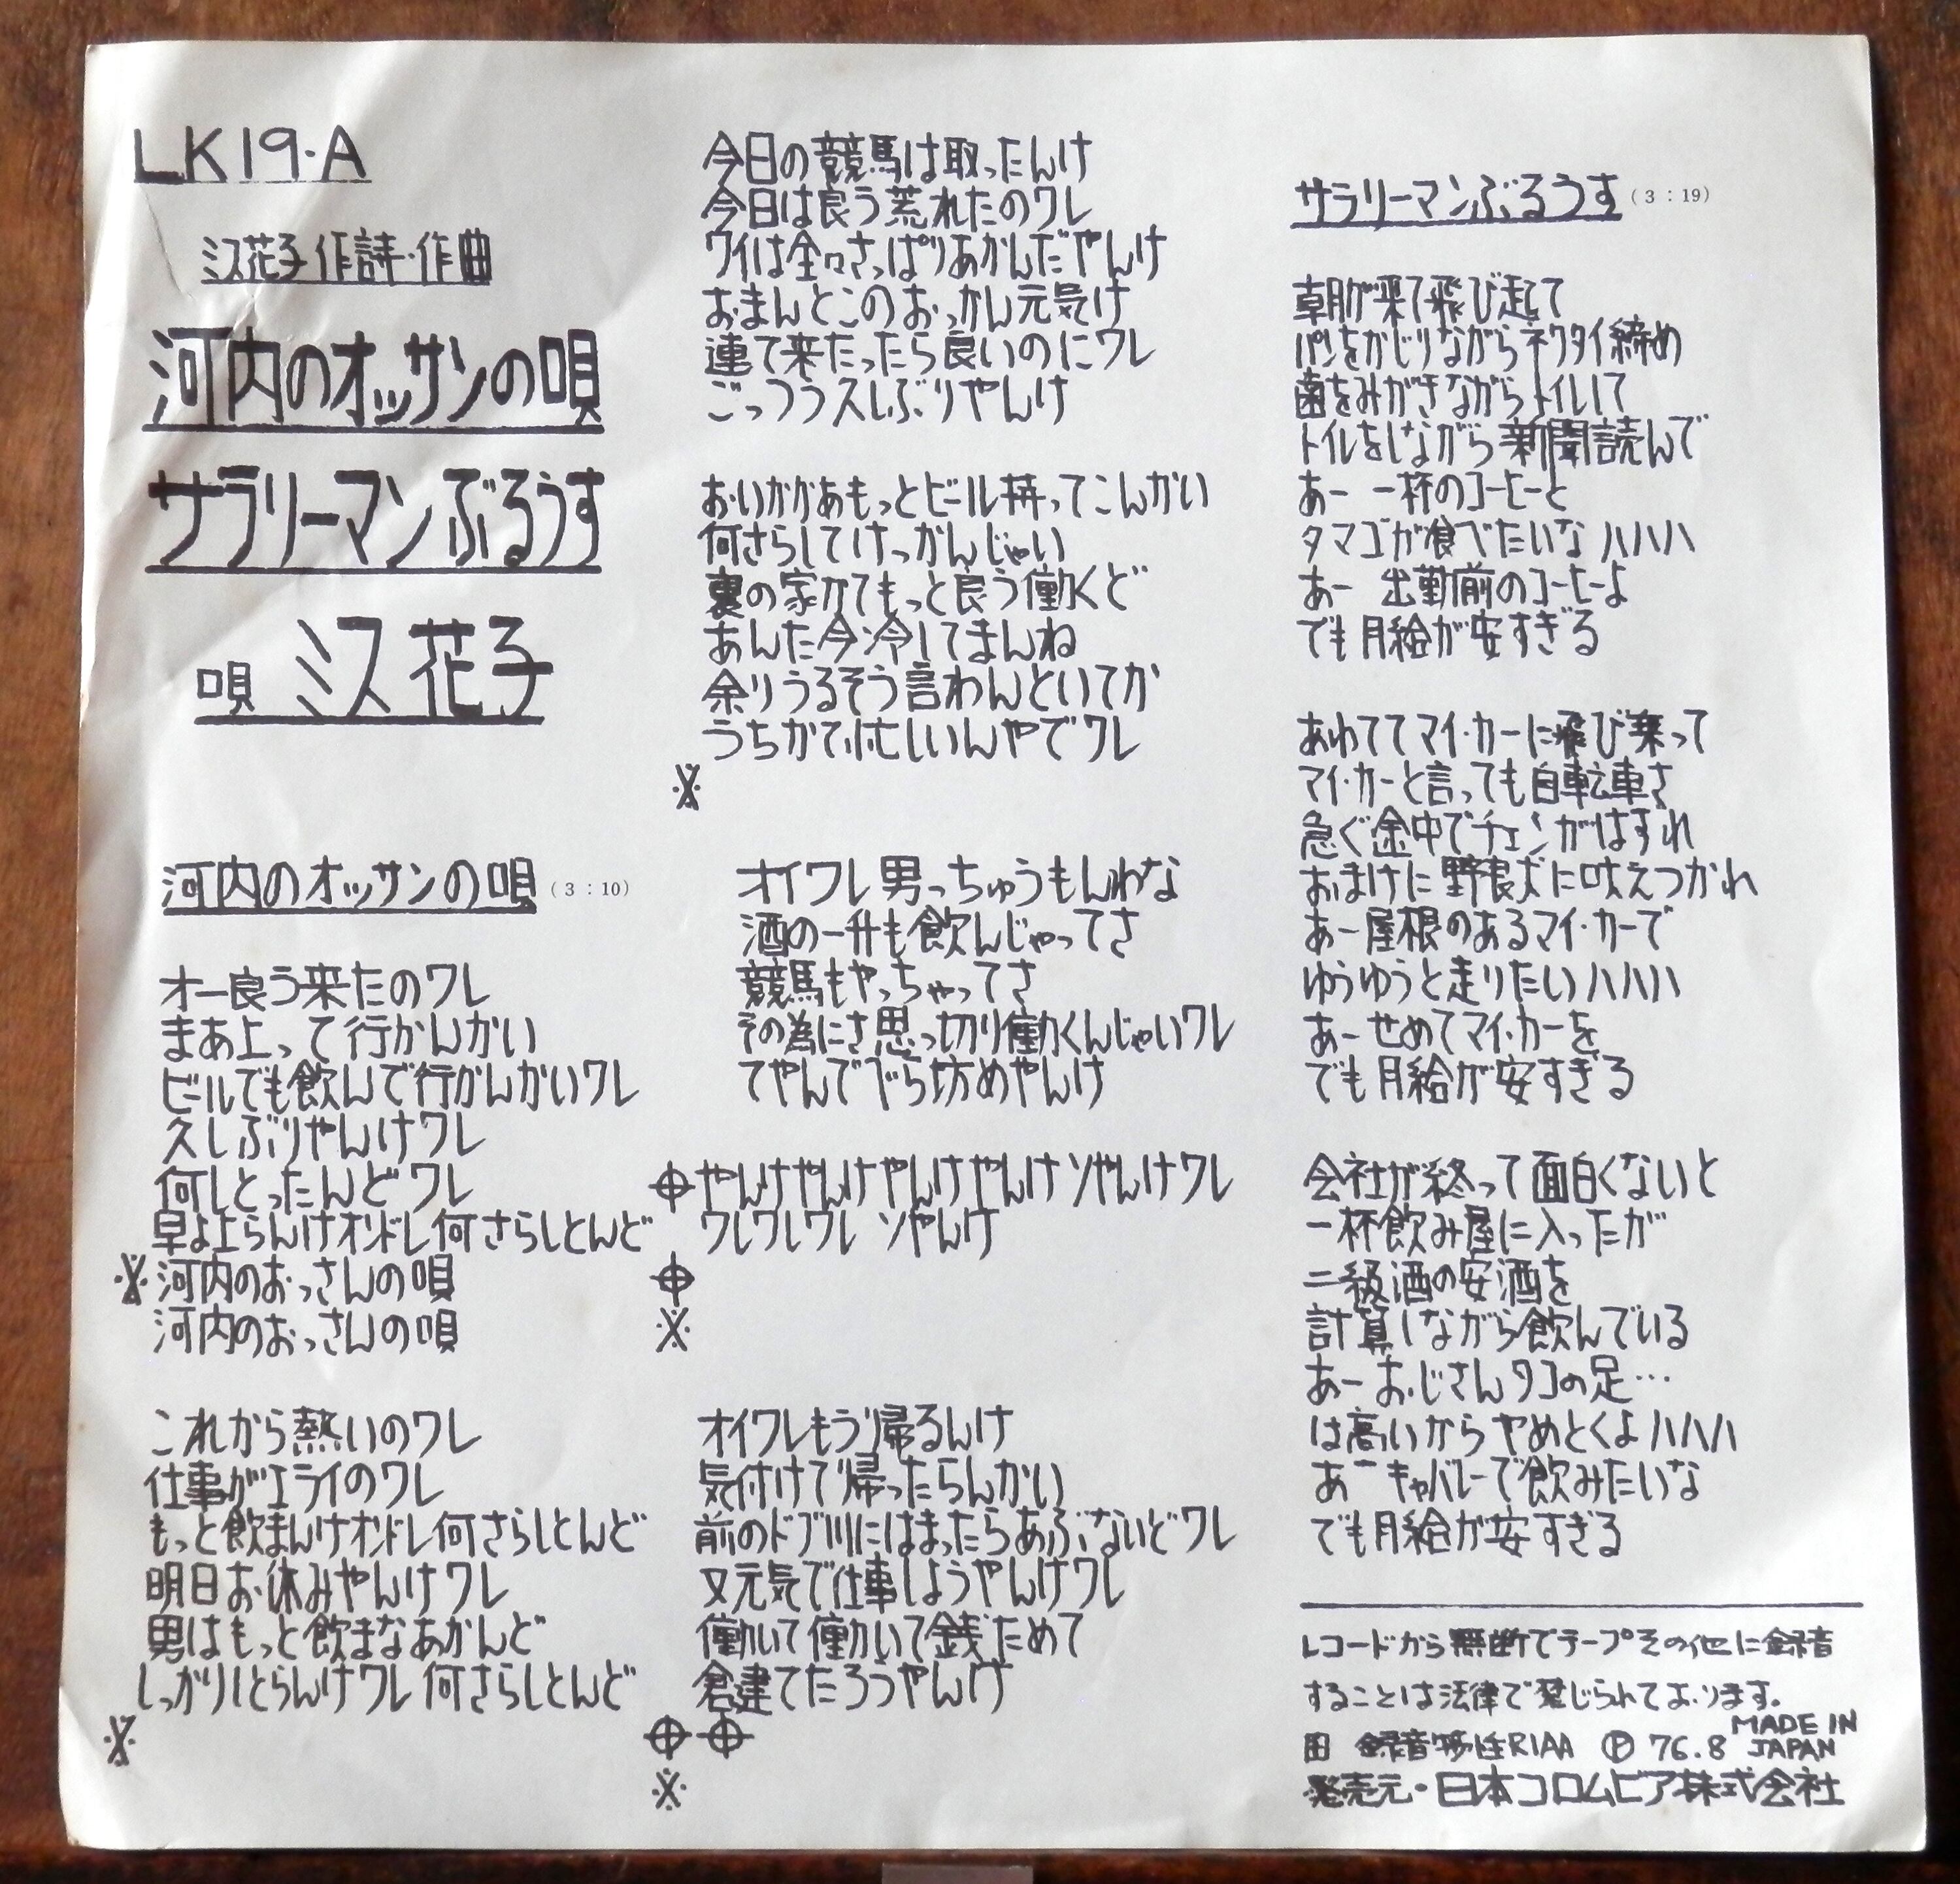 LK19·A
ミス花子 作詩·作曲
河内のオッサンの唄
サラリーマンぶるうす
唄 ミス花子
河内のオッサンの唄 (3:10)
オー良う来たのワレ
まあ上って行かんかい
ビールでも飲んで行かんかいワレ
久しぶりやんけワレ
何しとったんどワレ
早よ上らんけオンドレ何さらしとんど
※河内のおっさんの唄
河内のおっさんの唄
これから熱いのワレ
仕事がエライのワレ
もっと飲まんけオンドレ何さらしとんど
明日お休みやんけワレ
男はもっと飲まなあかんど
しっかりしとらんけワレ何さらしとんど
※
今日の競馬は取ったんけ
今日は良う荒れたのワレ
ワイは全々さっぱりあかんだやんけ
おまんとこのおっかん元気け
連て来たったら良いのにワレ
ごっつうスしぶりやんけ
おいかかあもっとビール持ってこんかい
何さらしてけっかんじゃい
裏の家かてもっと良う働くど
あんた今冷してまんね
余りうるそう言わんといてか
うちかて忙しいんやでワレ
※
オイワレ男っちゅうもんわな
酒の一升も飲んじゃってさ
競馬もやっちゃってさ
その為にさ思っ切り働くんじゃいワレ
てやんでべら坊めやんけ
⌽やんけやんけやんけやんけソやんけワレ
ワレワレワレ ソやんけ
⌽
※
オイワレもう帰るんけ
気付けて帰ったらんかい
前のドブ川にはまったらあぶないどワレ
又元気で仕事しようやんけワレ
働いて働いて銭ためて
倉建てたろうやんけ
⌽⌽
※
サラリーマンぶるうす (3:19)
朝が来て飛び起て
パンをかじりながらネクタイ締め
歯をみがきながらトイレして
トイレをしながら新聞読んで
あー 一杯のコーヒーと
タマゴが食べたいなハハハ
あー 出勤前のコーヒーよ
でも月給が安すぎる
あわててマイ·カーに飛び乗って
マイ·カーと言っても自転車さ
急ぐ途中でチェンがはずれ
おまけに野良犬に吠えつかれ
あー屋根のあるマイ·カーで
ゆうゆうと走りたいハハハ
あーせめてマイ·カーを
でも月給が安すぎる
会社が終って面白くないと
一杯飲み屋に入ったが
二級酒の安酒を
計算しながら飲んでいる
あーおじさんタコの足…
は高いからやめとくよハハハ
あーキャバレーで飲みたいな
でも月給が安すぎる
レコードから無断でテープその他に録音
することは法律で禁じられております。
録音特性RIAA Ⓟ 76.8 MADE IN JAPAN
発売元·日本コロムビア株式会社